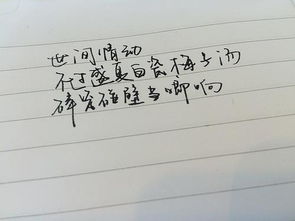 世间情动
不过盛夏白瓷梅子汤
碎冰碰壁当啷响